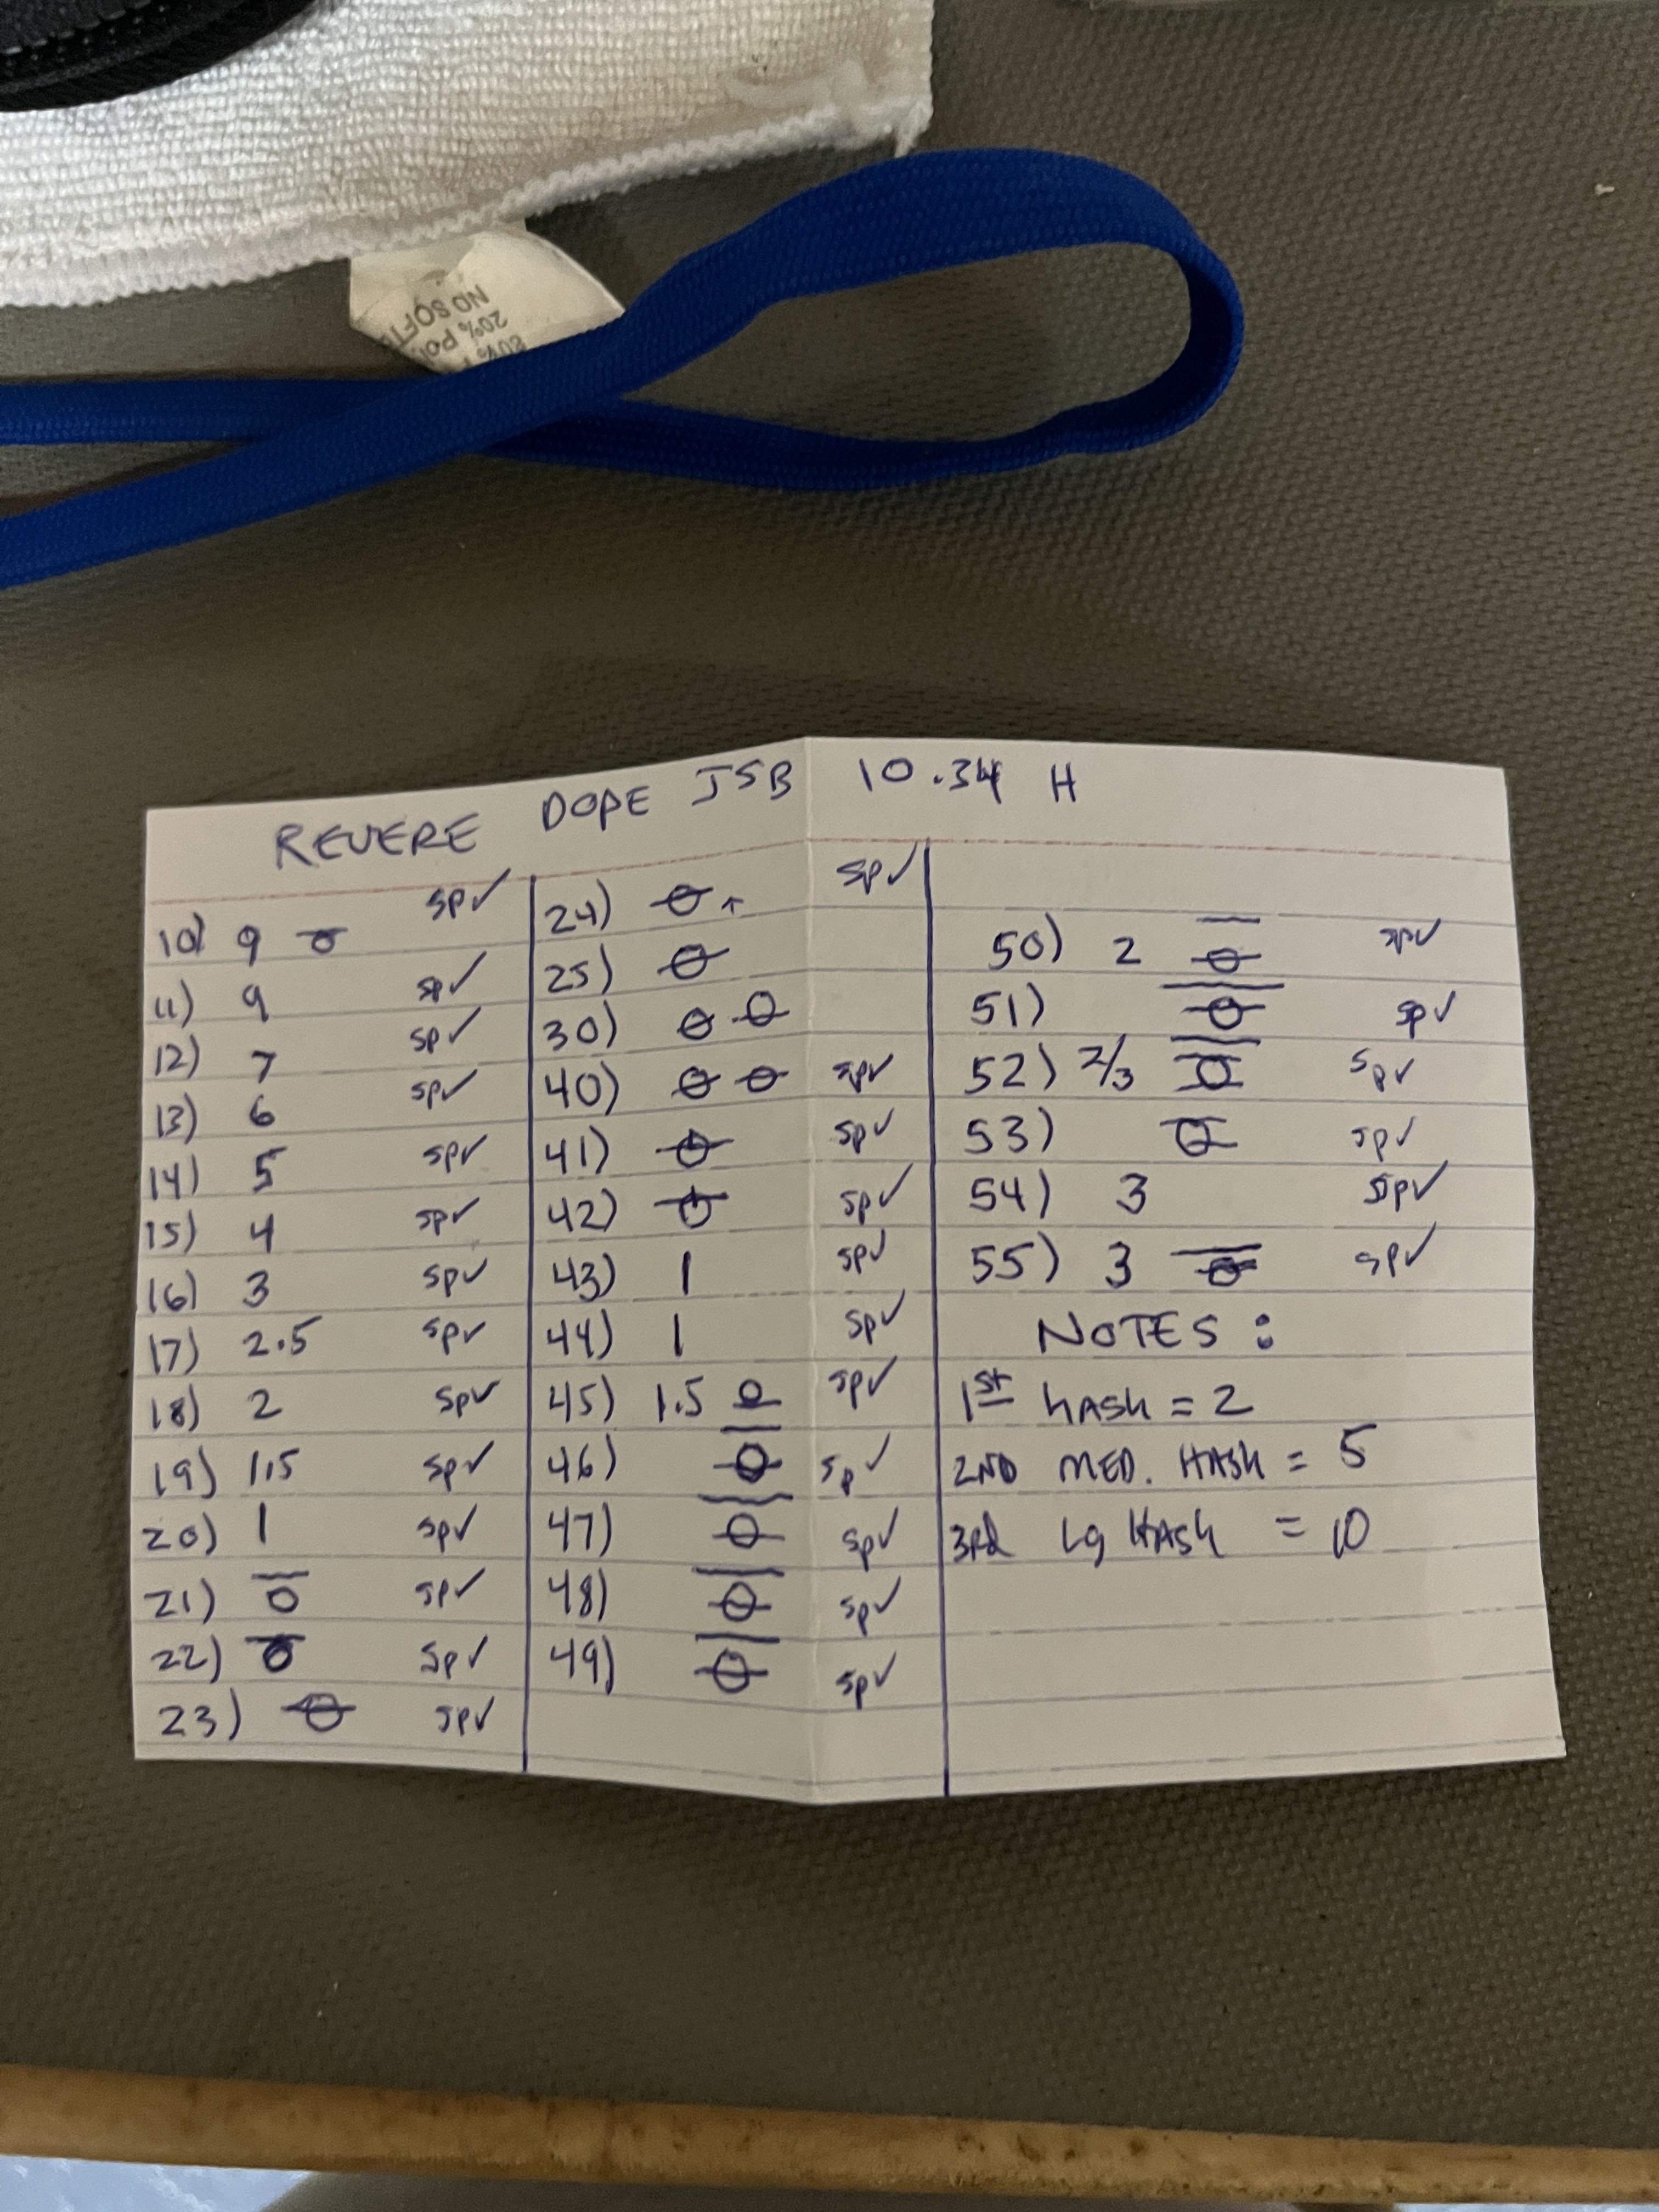 NO SOFT
20% PO
80%
REVERE DOPE JSB 10.34 H
10) 9 sp✓
11) 9 sp✓
12) 7 sp✓
13) 6 sp✓
14) 5 sp✓
15) 4 sp✓
16) 3 sp✓
17) 2.5 sp✓
18) 2 sp✓
19) 1.5 sp✓
20) 1 sp✓
21) sp✓
22) sp✓
23) sp✓
24) sp✓
25)
30)
40) sp✓
41) sp✓
42) sp✓
43) 1 sp✓
44) 1 sp✓
45) 1.5 sp✓
46) sp✓
47) sp✓
48) sp✓
49) sp✓
50) 2 sp✓
51) sp✓
52) 2/3 sp✓
53) sp✓
54) 3 sp✓
55) 3 sp✓
NOTES :
1st HASH = 2
2ND MED. HASH = 5
3Rd Lg HASH = 10